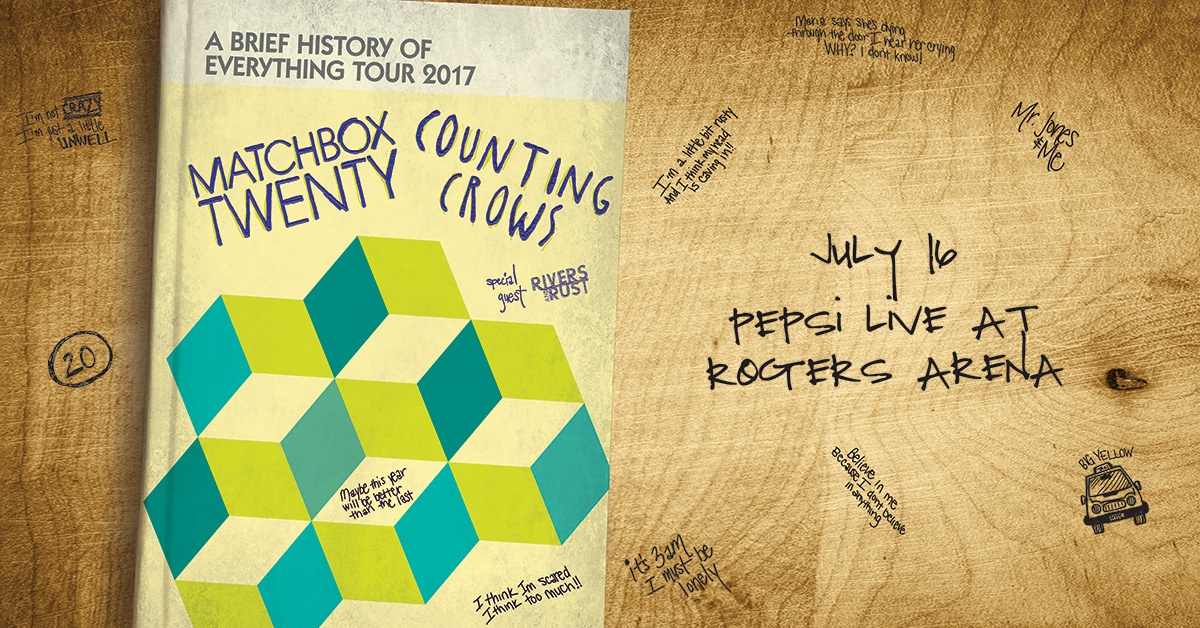 A BRIEF HISTORY OF
EVERYTHING TOUR 2017
MATCHBOX
TWENTY
COUNTING
CROWS
special
guest
RIVERS
AND
RUST
Maybe this year
will be better
than the last
I think Im scared
I think too much!!
I'm not CRAZY
I'm just a little
UNWELL
20
Maria says she's dying
through the door I hear her crying
WHY? I dont know!
I'm a little bit rusty
And I think my head
is caving in!!
Mr. Jones
& Me
JULY 16
PEPSI LIVE AT
ROGERS ARENA
Believe in me
Because I don't believe
in anything
BIG YELLOW
TAXI
it's 3am
I must be
lonely